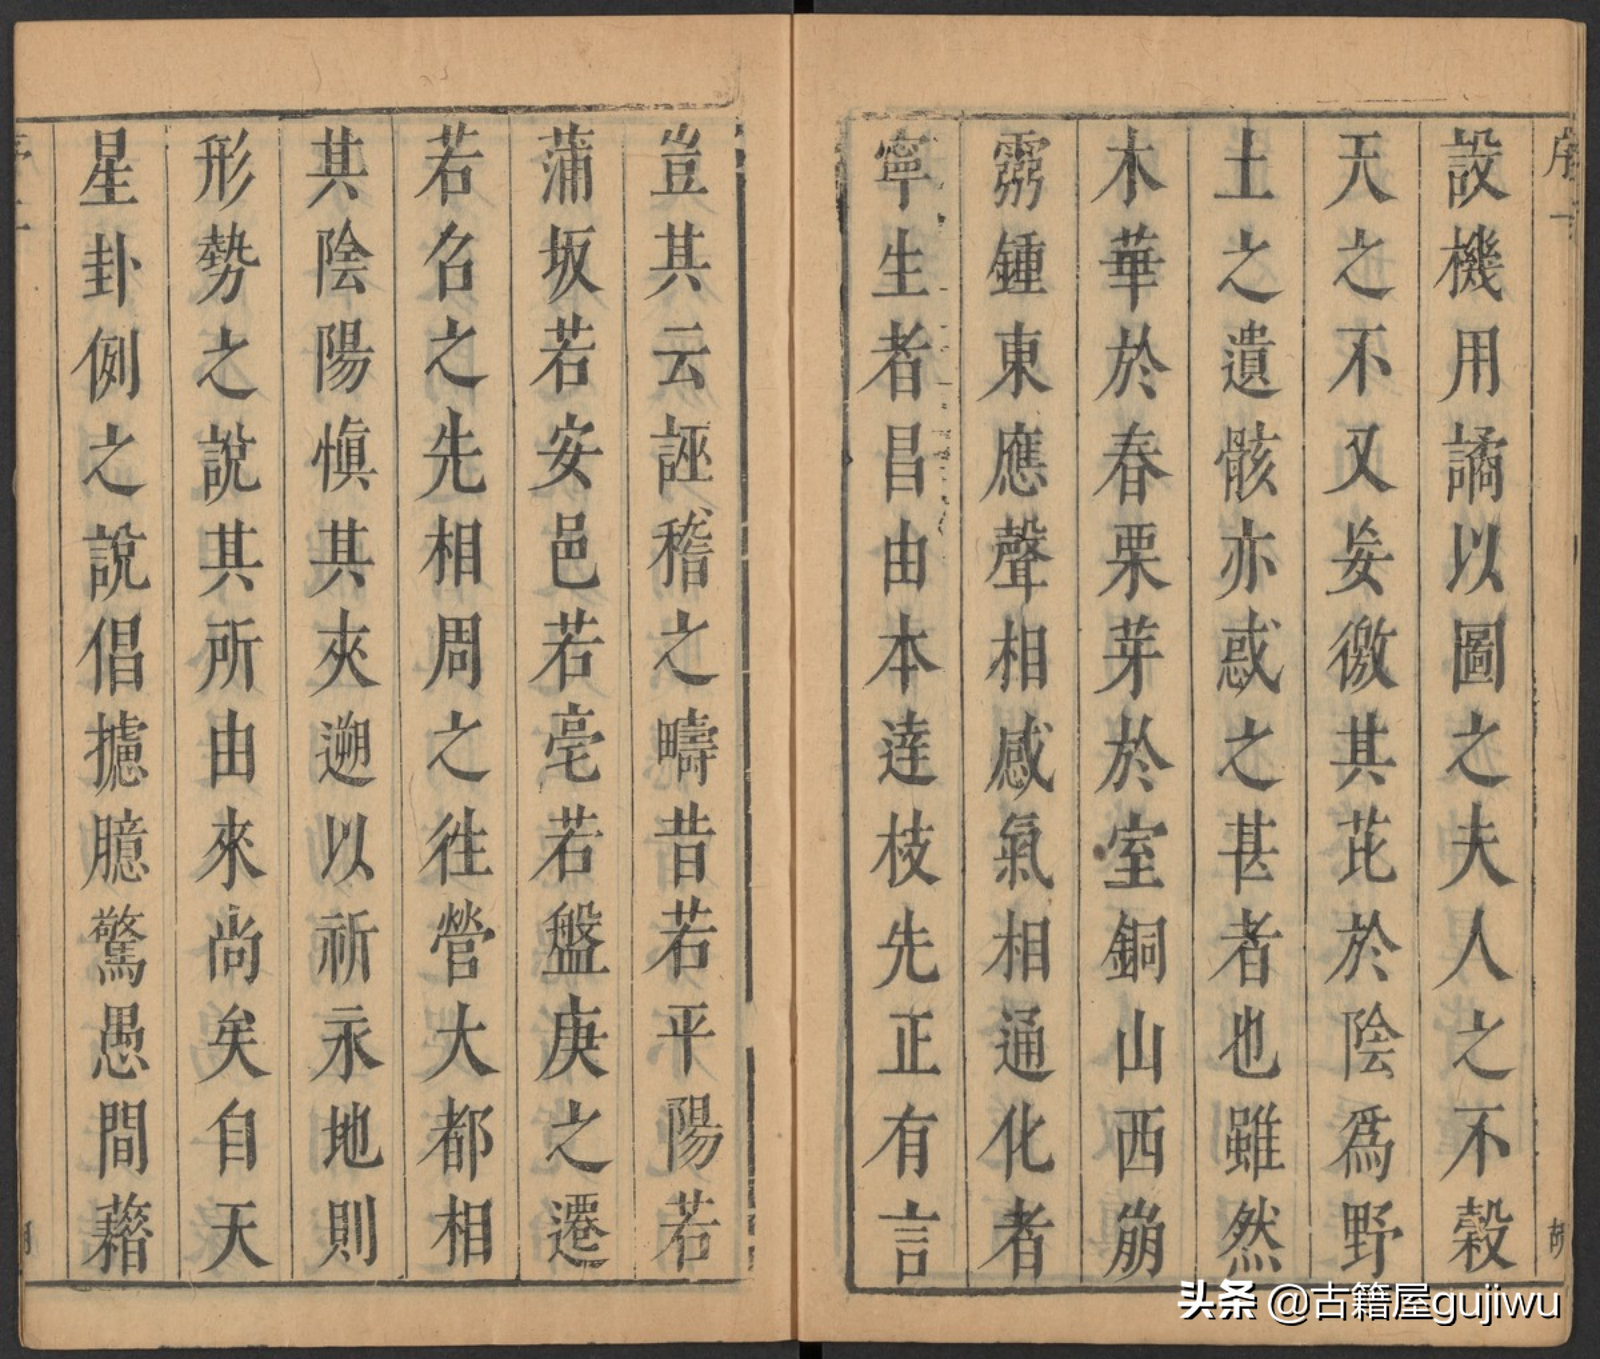 序一
設機用譎以圖之夫人之不穀
天之不又妄徼其芘於陰爲野
土之遺骸亦惑之甚者也雖然
木華於春栗芽於室銅山西崩
霛鍾東應聲相感氣相通化者
寧生者昌由本達枝先正有言
豈其云誣稽之疇昔若平陽若
蒲坂若安邑若亳若盤庚之遷
若名之先相周之徃營大都相
其陰陽愼其夾遡以祈永地則
形勢之說其所由來尚矣自天
星卦例之說倡攄臆驚愚間藉
头条 @古籍屋gujiwu